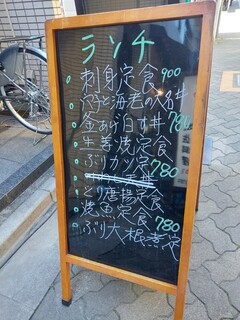 ランチ
刺身定食 900
海老の
釜あげ白す丼 780
生姜焼定食
ぶりカツ定 780
とり唐揚定食
焼魚定食 780
ぶり大根煮定